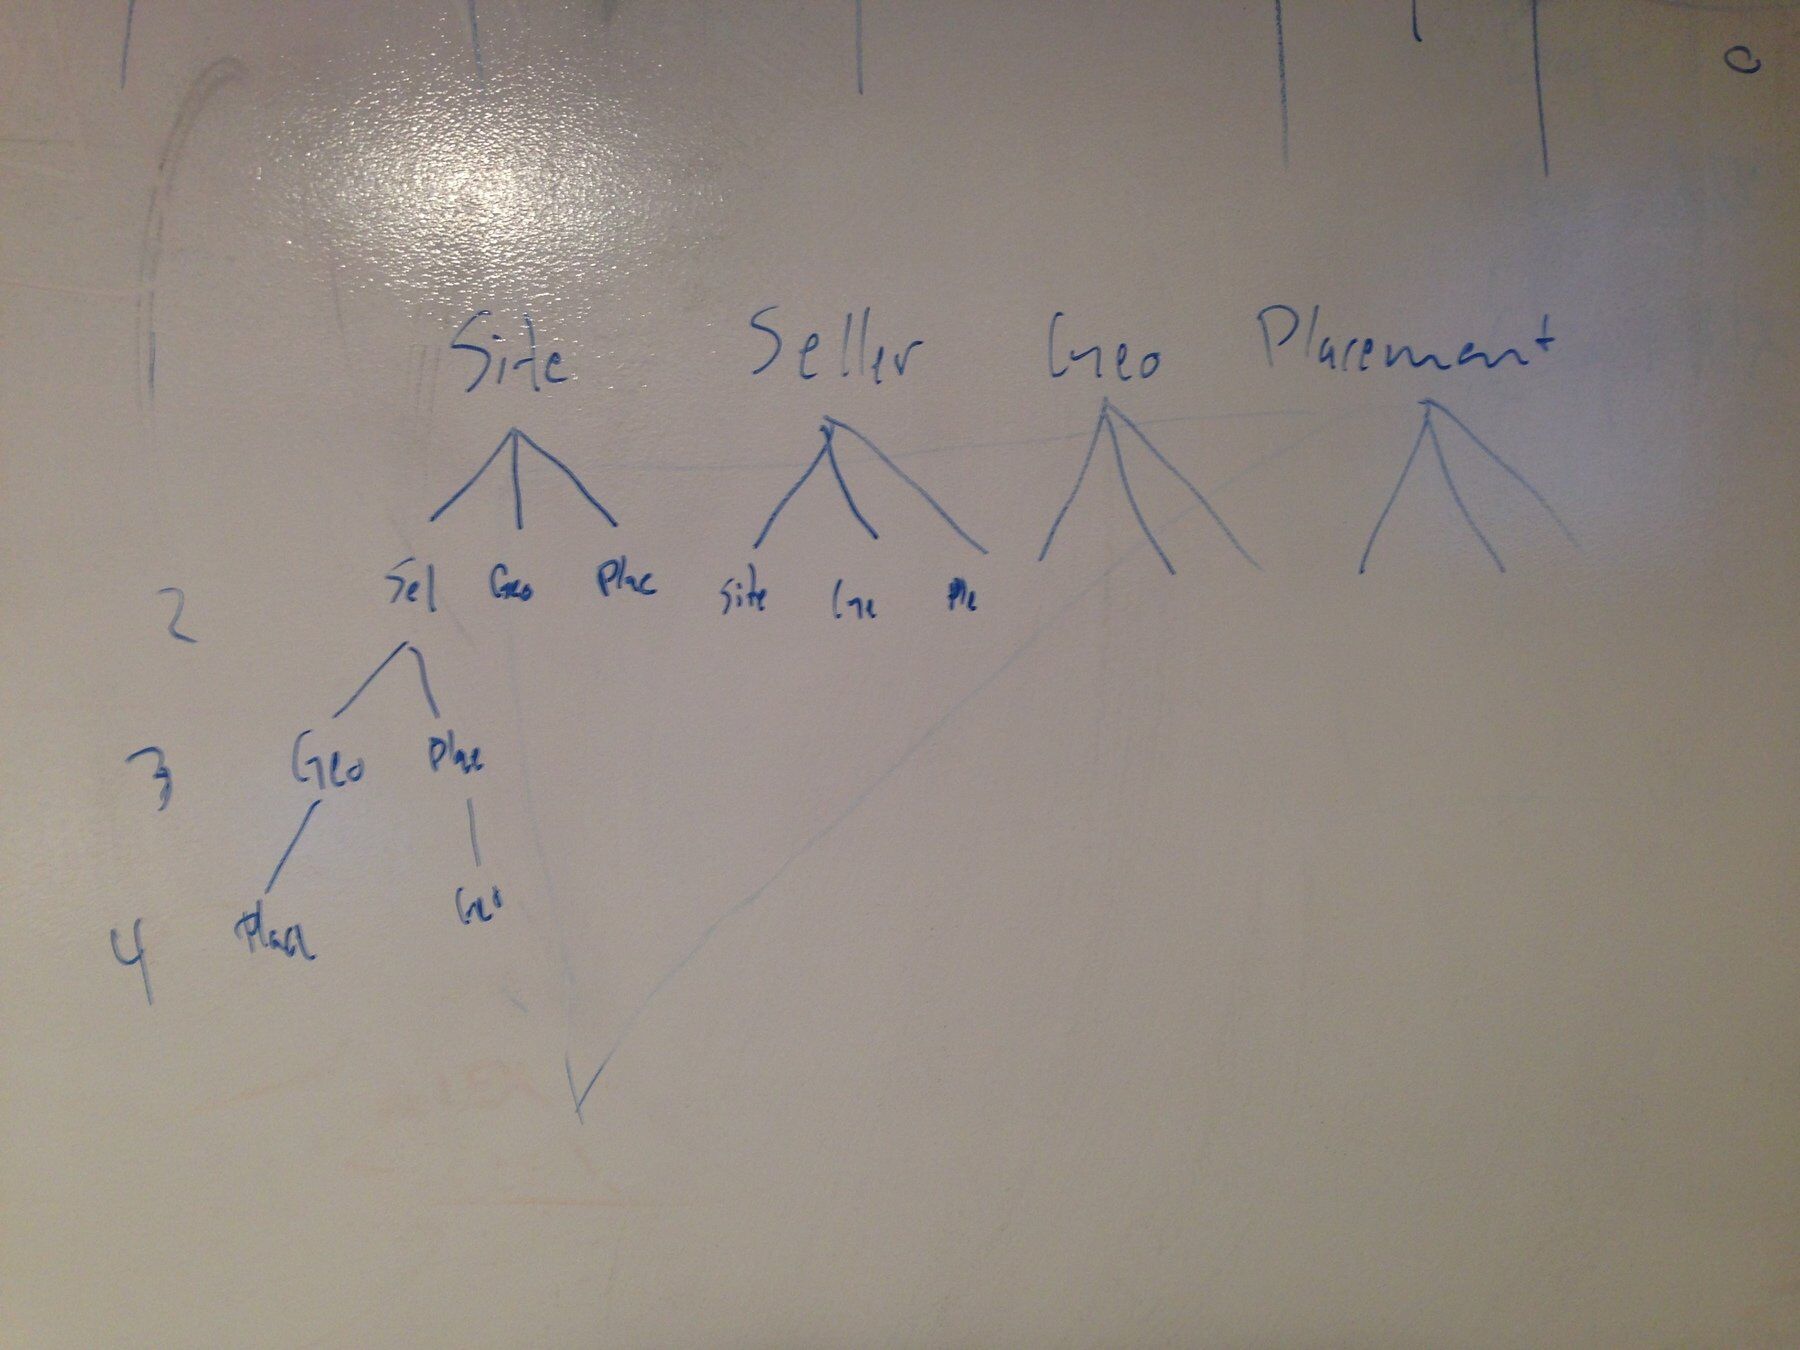 Site Seller Geo Placement
1
2 Sel Geo Plac Site Ge Ple
3 Geo Plac
4 Place Geo